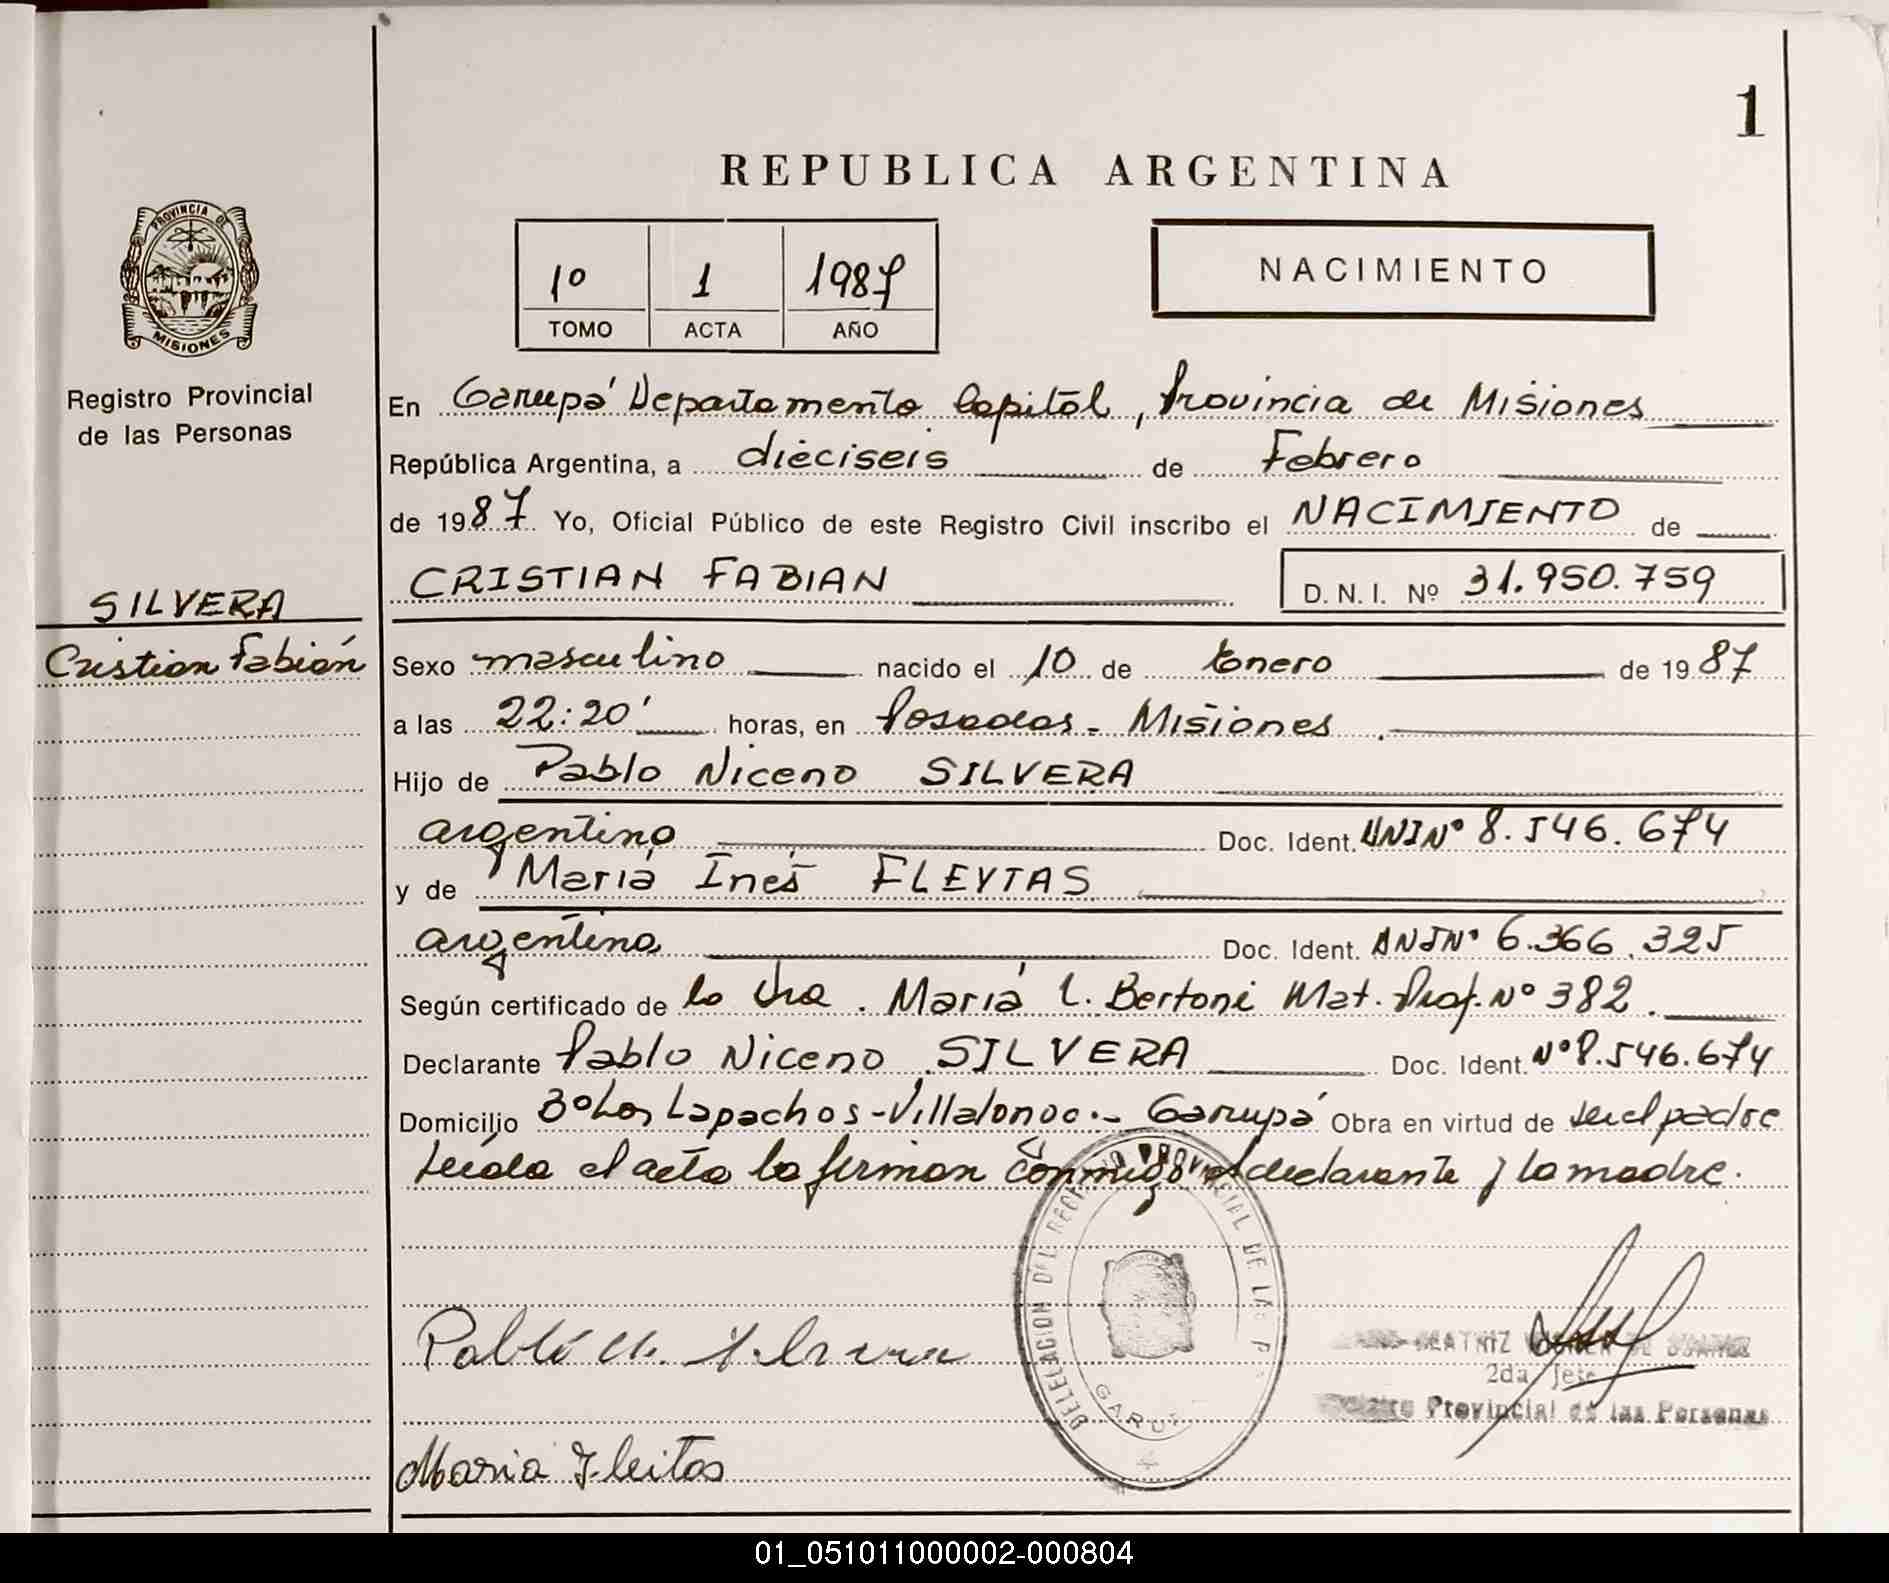 1
REPUBLICA ARGENTINA
PROVINCIA DE
MISIONES
Registro Provincial
de las Personas
1º 1 1987
TOMO ACTA AÑO
NACIMIENTO
En Garupá Departamento Capital, Provincia de Misiones
República Argentina, a dieciseis de Febrero
de 1987 Yo, Oficial Público de este Registro Civil inscribo el NACIMIENTO de
CRISTIAN FABIAN D. N. I. Nº 31.950.759
SILVERA
Cristian Fabián
Sexo masculino nacido el 10 de Enero de 1987
a las 22:20' horas, en Posadas - Misiones.
Hijo de Pablo Niceno SILVERA
argentino Doc. Ident. DNI Nº 8.546.674
y de María Inés FLEYTAS
argentina Doc. Ident. DNI Nº 6.366.325
Según certificado de la Dra. María L. Bertoni Mat. Prof. Nº 382.
Declarante Pablo Niceno SILVERA Doc. Ident. Nº 8.546.674
Domicilio Bº Los Lapachos - Villalonga.- Garupá Obra en virtud de ser el padre
Leída el acta la firman conmigo el declarante y la madre.
DELEGACION DEL REGISTRO PROVINCIAL DE LAS P
GARUP
Pablo N. Silvera
BEATRIZ DE
2da Jefe
Registro Provincial de las Personas
Maria Fleitas
01_051011000002-000804